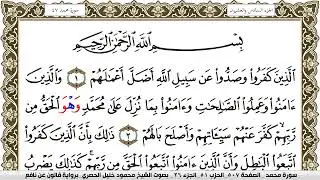 الجزء السادس والعشرون
سورة محمد ٤٧
بِسْمِ اللَّهِ الرَّحْمَٰنِ الرَّحِيمِ
الَّذِينَ كَفَرُوا وَصَدُّوا عَن سَبِيلِ اللَّهِ أَضَلَّ أَعْمَٰلَهُمْ ١ وَالَّذِينَ
ءَامَنُوا وَعَمِلُوا الصَّٰلِحَٰتِ وَءَامَنُوا بِمَا نُزِّلَ عَلَىٰ مُحَمَّدٍ وَهُوَ الْحَقُّ مِن
رَّبِّهِمْ كَفَّرَ عَنْهُمْ سَيِّـَٔاتِهِمْ وَأَصْلَحَ بَالَهُمْ ٢ ذَٰلِكَ بِأَنَّ الَّذِينَ كَفَرُوا
اتَّبَعُوا الْبَٰطِلَ وَأَنَّ الَّذِينَ ءَامَنُوا اتَّبَعُوا الْحَقَّ مِن رَّبِّهِمْ كَذَٰلِكَ يَضْرِبُ
سورة محمد - الصفحة ٥٠٧ - الحزب ٥١ - الجزء ٢٦ - بصوت الشيخ محمود خليل الحصري - برواية قالون عن نافع